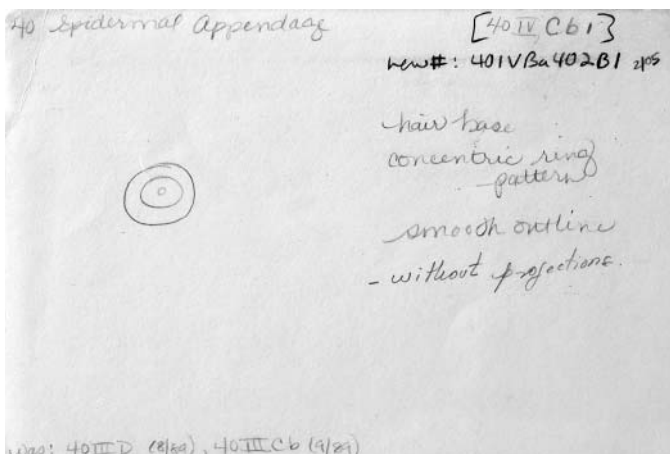 40 Epidermal Appendage
[40 IV Cb1]
new#: 40IVBa402B1 2/05
hair base
concentric ring
pattern
smooth outline
- without projections.
was: 40 III D (8/89), 40 III Cb (9/89)